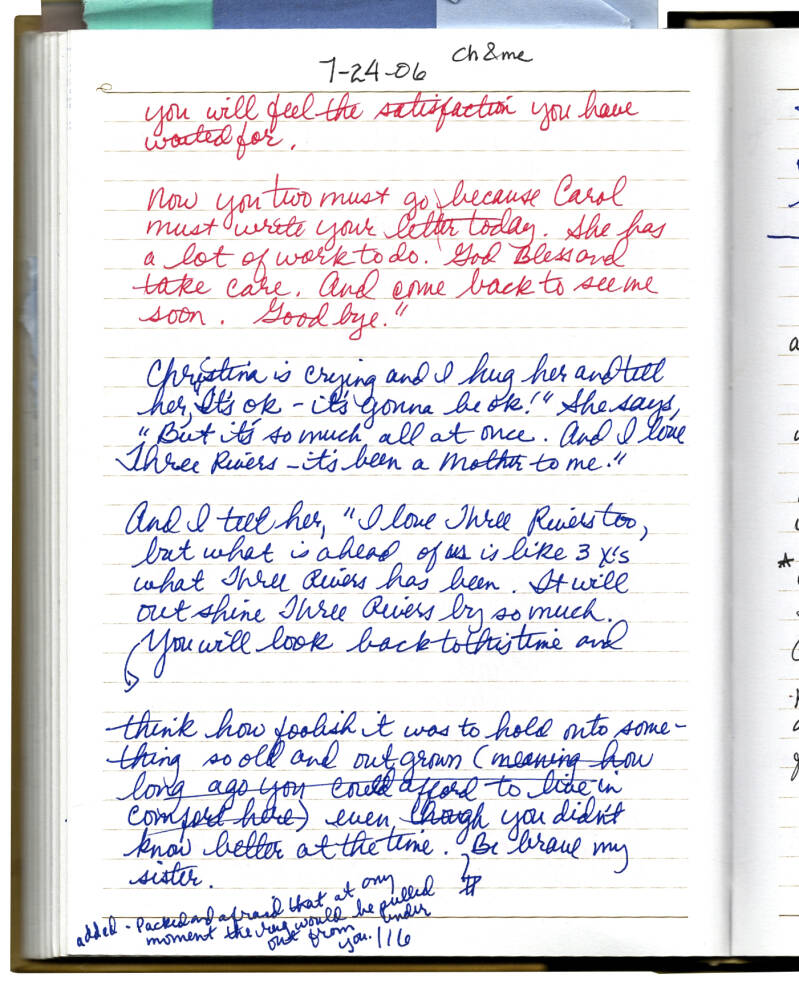 7-24-06 Ch & me
you will feel the satisfaction you have
waited for.
Now you two must go, because Carol
must write your letter today. She has
a lot of work to do. God Bless and
take care. And come back to see me
soon. Good bye."
Christina is crying and I hug her and tell
her, "It's ok - it's gonna be ok!" She says,
"But it's so much all at once. And I love
Three Rivers - it's been a Mother to me."
And I tell her, "I love Three Rivers too,
but what is ahead of us is like 3 x's
what Three Rivers has been. It will
out shine Three Rivers by so much.
You will look back to this time and
think how foolish it was to hold onto some-
thing so old and outgrown (meaning how
long ago you could afford to live in
comfort here) even though you didn't
know better at the time. Be brave my
sister.
added - Packed and afraid that at any
moment the rug would be pulled
out from under
you. 1/16